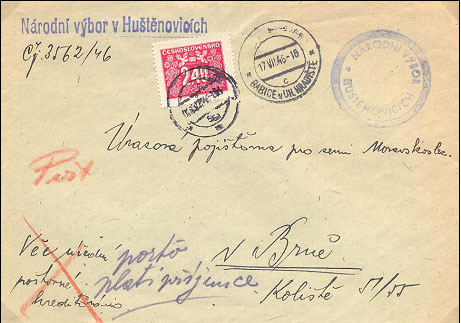 Národní výbor v Huštěnovicích
Čj. 3562/46
ČESKOSLOVENSKO
2'40
17.VII.46-18
BABICE v UH. HRADIŠTĚ
c
NÁRODNÍ VÝBOR
HUŠTĚNOVICÍCH
Úrazova pojišťovna pro zemi Moravskoslez.
Věc úřední
poštovné
portó
platí příjemce
v Brně
Koliště